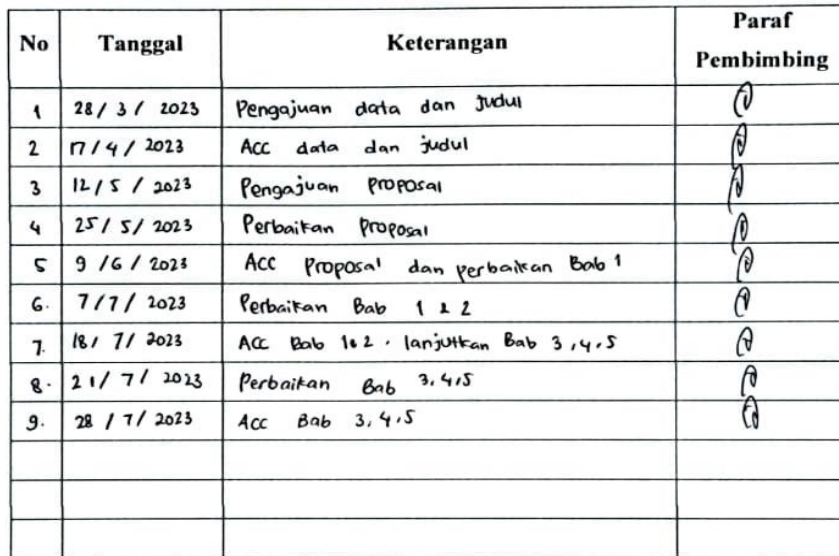 No Tanggal Keterangan Paraf Pembimbing
1 28/3/2023 Pengajuan data dan Judul
2 17/4/2023 ACC data dan judul
3 12/5/2023 Pengajuan Proposal
4 25/5/2023 Perbaikan Proposal
5 9/6/2023 ACC Proposal dan perbaikan Bab 1
6. 7/7/2023 Perbaikan Bab 1 & 2
7. 18/7/2023 ACC Bab 1&2. lanjutkan Bab 3,4,5
8. 21/7/2023 Perbaikan Bab 3,4,5
9. 28/7/2023 ACC Bab 3,4,5